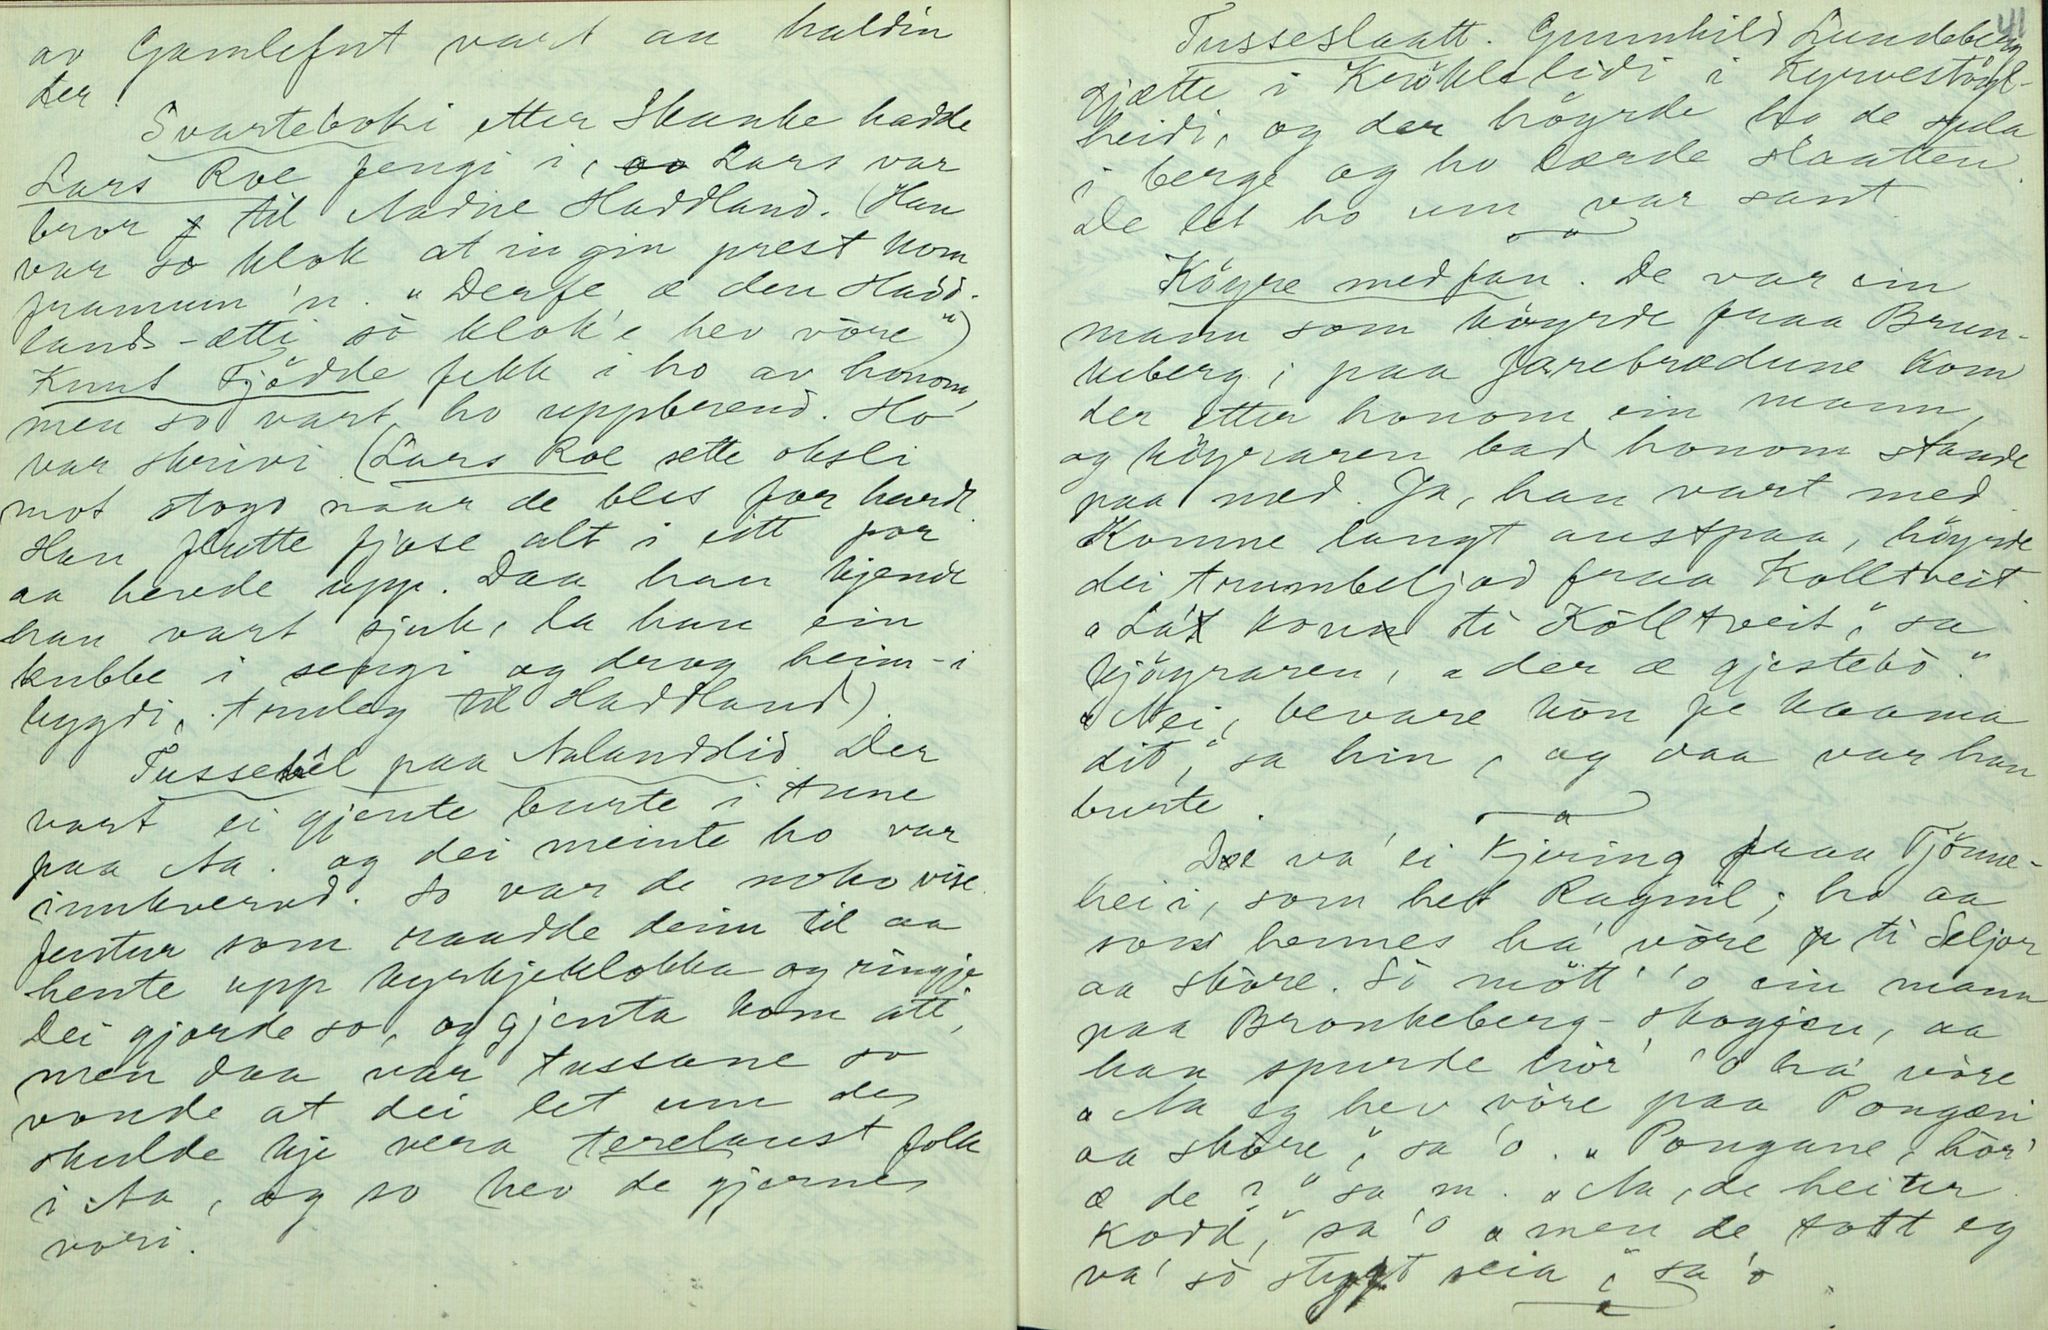 av Gamlefut vart aa haldin
der.
Svarteboki etter Skanke hadde
Lars Roe fengi i, Lars var
bror til Aadne Haddland. (Han
var so klok at ingin prest kom
framum 'n. "Derfe æ den Hadd-
lands-ætti só klok'e hev vöre")
Knut Tjödde fekk i ho av honom,
men so vart ho uppbrend. Ho
var skrivi (Lars Roe sette oksli
mot stogo naar de bles for hardt.
Han flutte fjøse alt i eitt for
aa herde upp. Daa han kjende
han vart sjuk, la han ein
kubbe i sengi og drog heim-i
bygdi, truleg til Haddland).
Tussehêl paa Aalandslid. Der
vart ei gjente burte i tune
paa Aa. og dei meinte ho var
innkvervd. So var de noko vise
fentur som raadde deim til aa
hente upp kyrkjeklokka og ringje.
Dei gjorde so, og gjenta kom att,
men daa var tussane so
vonde at dei let um der
skulde kje vera terelaust folk
i Aa, og so hev de gjerne
vori.
41
Tusseslaatt. Gunnhild Lundeberg
gjætte i Kröklelidi i Kyrvestöyl-
heidi, og der höyrde ho de spela
i berge og ho lærde slaatten.
De let ho um var sant
Köyre med fan. De var ein
mann som köyrde fraa Brun-
keberg; paa Farebrædune kom
der etter honom ein mann,
og köyraren bad honom stande
paa med. Ja, han vart med.
Komne langt austpaa, höyrde
dei trumbeljod fraa Kolltveit.
"Lát kom ti Kölltveit", sa
kjöyraren, "der æ gjestebò."
"Nei, bevare kön fe kaama
dit", sa hin, og daa var han
burte.
De va' ei Kjering fraa Tjönne-
heii, som het Ragnil; ho aa
son hennes ha' vöre ti Seljor
aa sköre. Sò mött' 'o ein mann
paa Bronkeberg-skogjen, aa
han spurde hör' 'o ha' vöre
"Aa eg hev vöre paa Pongæri
aa sköre", sa 'o. "Pongane, hör'
æ de?" sa 'n. "Aa, de heiter
Kodd", sa 'o "men de tott eg
va' sò stygt seia", sa 'o.